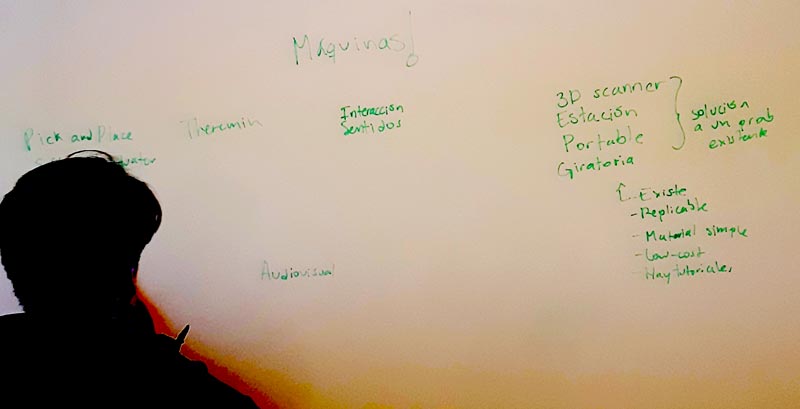 Máquinas!
Pick and Place
Theremin
Interacción
Sentidos
Audiovisual
3D scanner
Estación
Portable
Giratoria
solución
a un prob
existente
Existe
- Replicable
- Material simple
- Low-cost
- Hay tutoriales